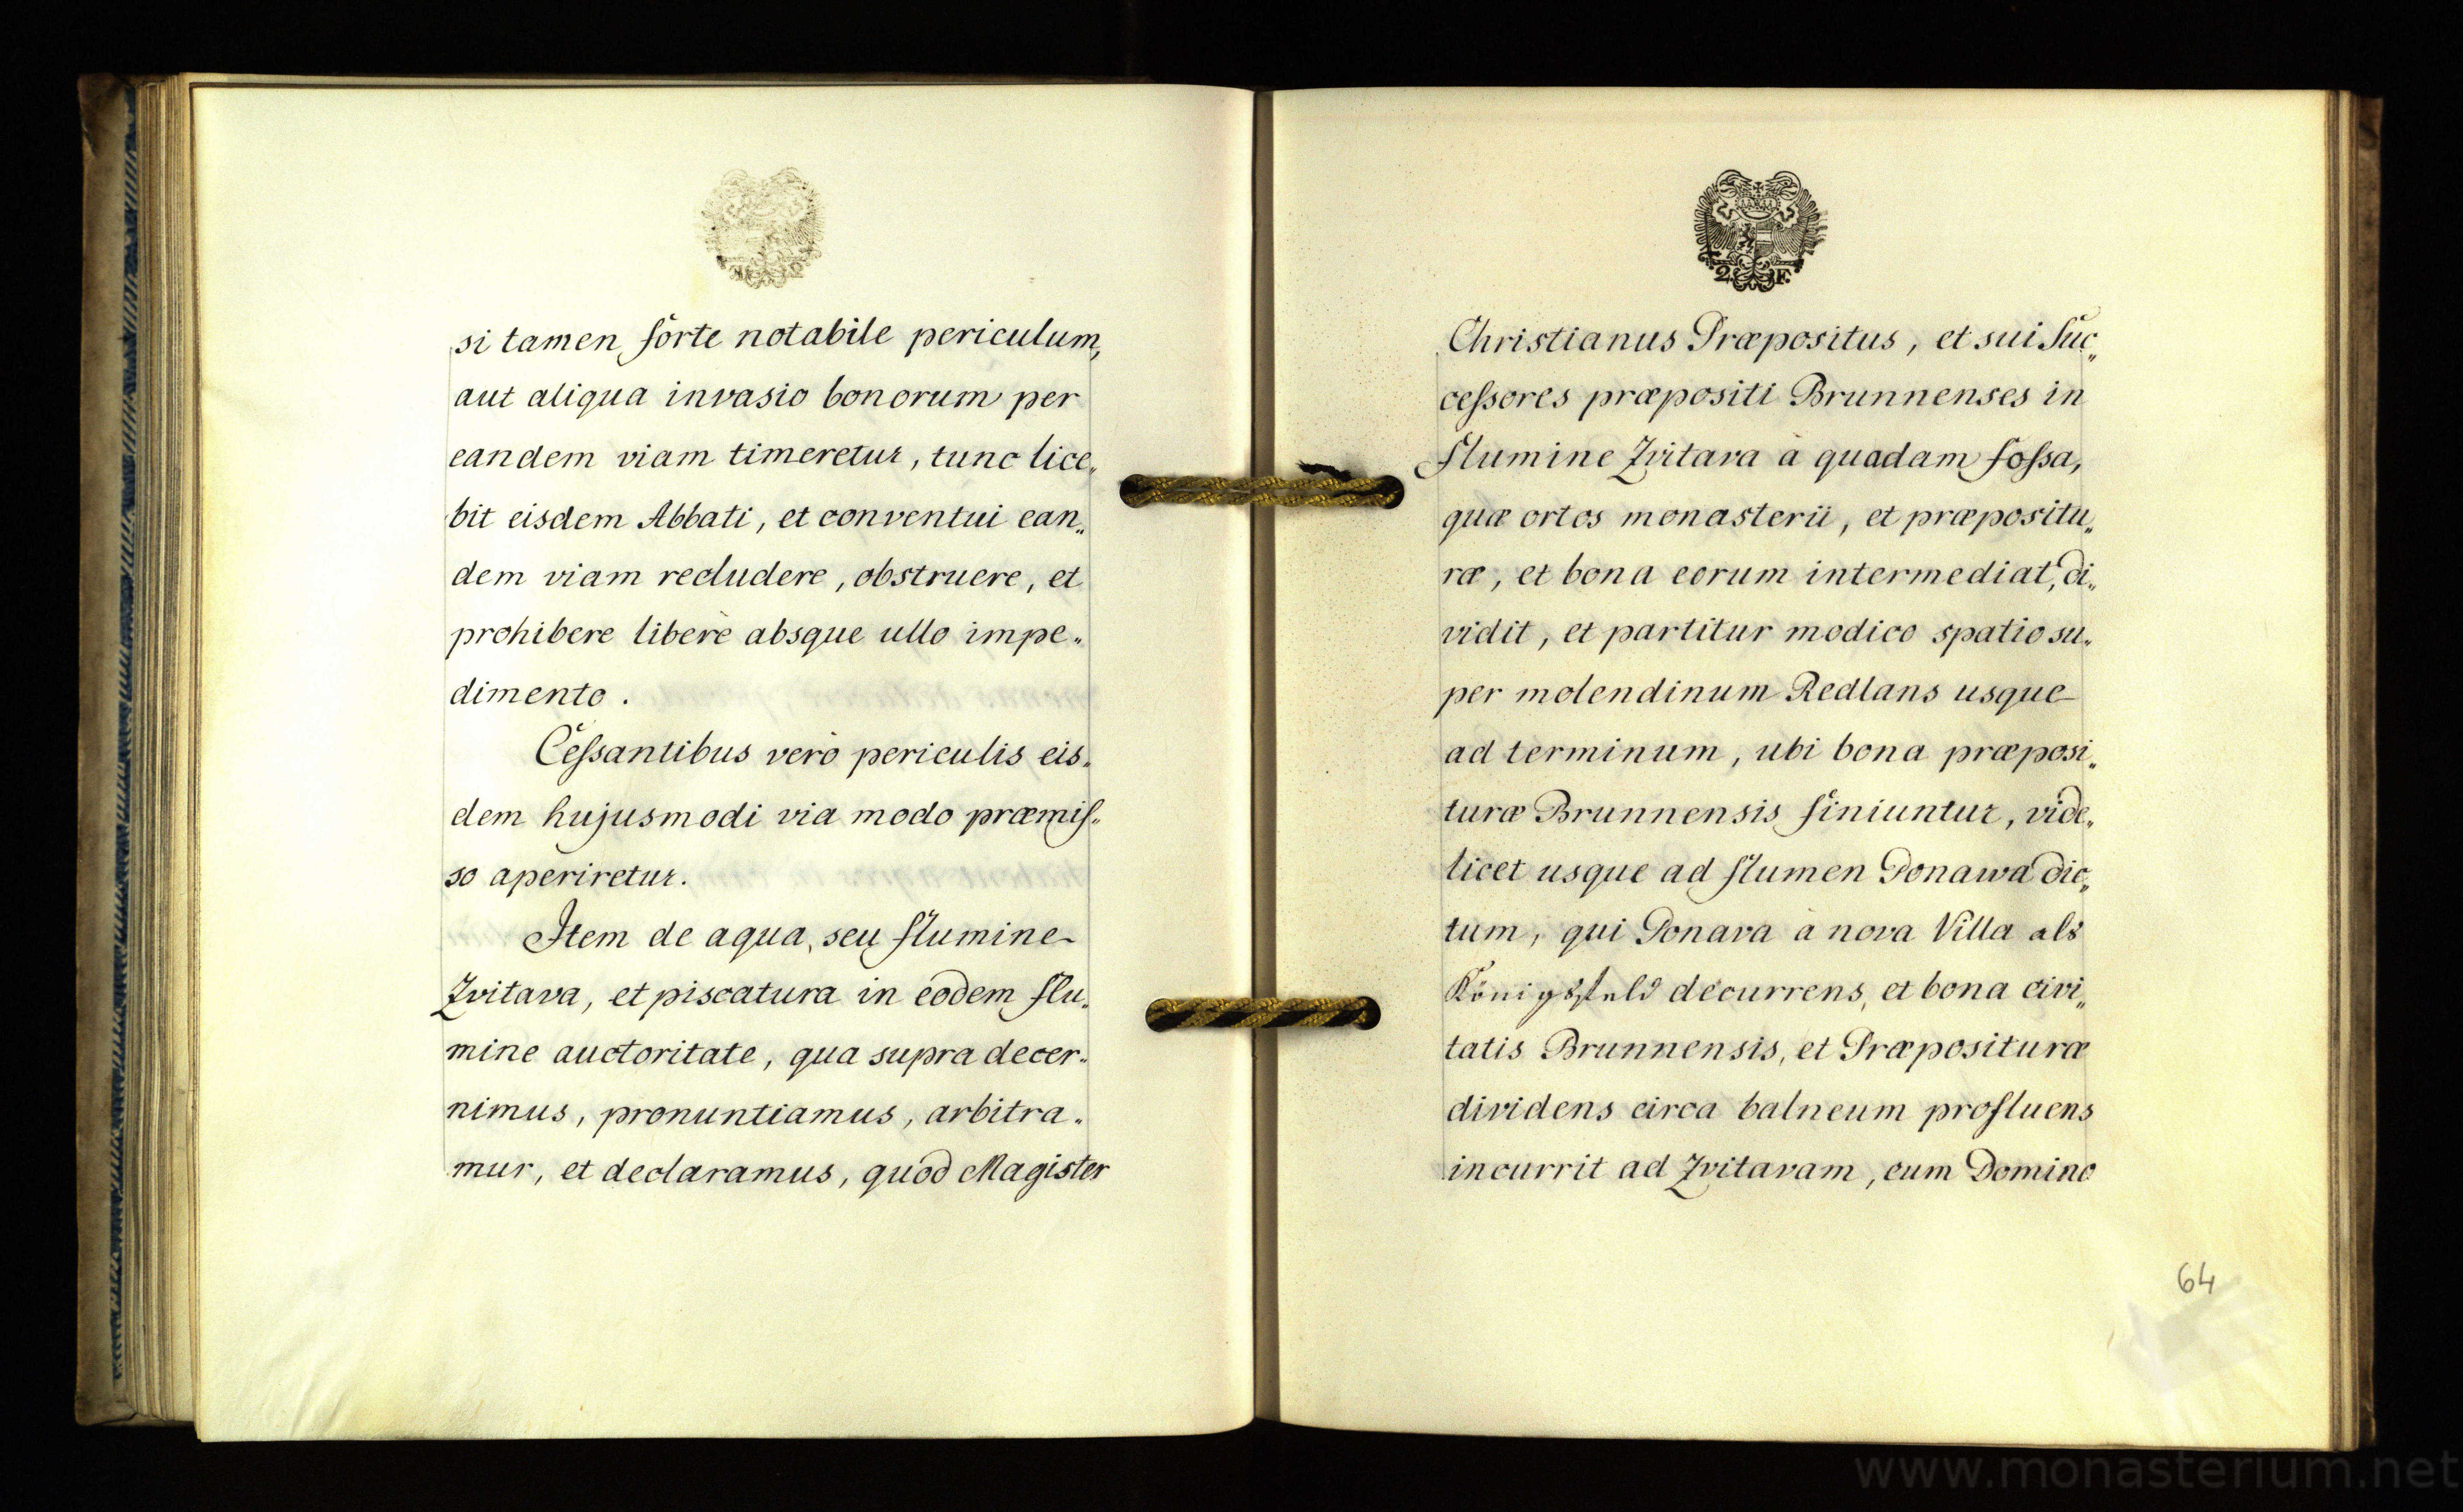 si tamen forte notabile periculum,
aut aliqua invasio bonorum per
eandem viam timeretur, tunc lice„
bit eisdem Abbati, et conventui ean„
dem viam recludere, obstruere, et
prohibere liberè absque ullo impe„
dimento.
Ceſsantibus verò periculis eis„
dem hujusmodi via modo præmiſ„
so aperiretur.
Item de aqua, seu flumine
Zvitava, et piscatura in eodem flu„
mine auctoritate, qua supra decer„
nimus, pronuntiamus, arbitra„
mur, et declaramus, quod Magister
2 F.
Christianus Præpositus, et sui Suc„
ceſsores præpositi Brunnenses in
flumine Zvitava à quadam foſsa,
quæ ortos monasterii, et præpositu„
ræ, et bona eorum intermediat, di„
vidit, et partitur modico spatio su„
per molendinum Redlans usque
ad terminum, ubi bona præposi„
turæ Brunnensis finiuntur, vide„
licet usque ad flumen Ponawa dic„
tum, qui Ponava à nova Villa als
Königsfeld decurrens, et bona civi„
tatis Brunnensis, et Præposituræ
dividens circa balneum profluens
incurrit ad Zvitavam, cum Domino
64
www.monasterium.net